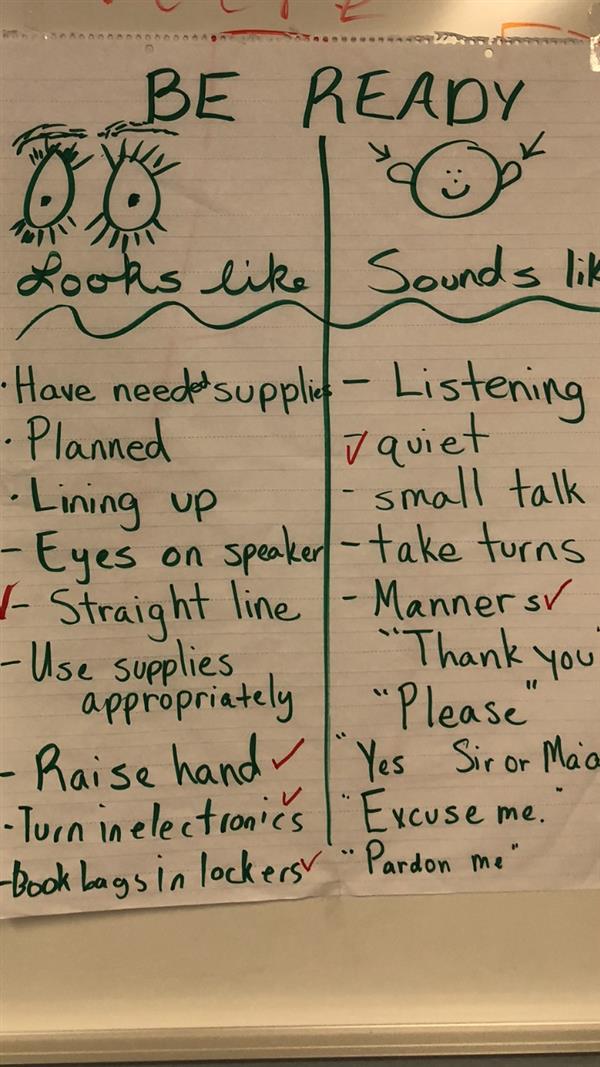 BE READY
Looks like
· Have needed supplies
· Planned
· Lining up
- Eyes on speaker
✓- Straight line
- Use supplies
appropriately
- Raise hand ✓
- Turn in electronics ✓
- Book bags in lockers ✓
Sounds lik
- Listening
-✓ quiet
- small talk
- take turns
- Manners ✓
"Thank you"
"Please"
"Yes Sir or Ma'a
"Excuse me."
"Pardon me"